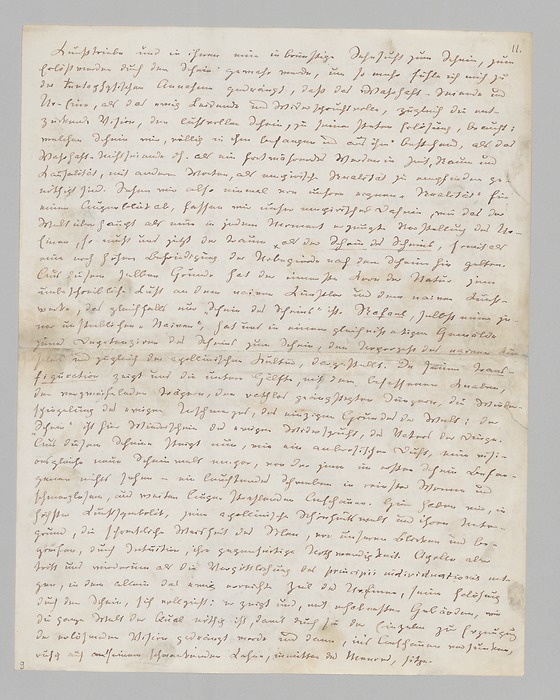 Kunsttriebe und in ihnen eine inbrünstige Sehnsucht zum Schein, zum 11.
Erlöstwerden durch den Schein gewahr werde, um so mehr fühle ich mich zu
der metaphysischen Annahme gedrängt, daß das Wahrhaft-Seiende und
Ur-Eine, als das ewig Leidende und Widerspruchsvolle, zugleich die ent-
zückende Vision, den lustvollen Schein, zu seiner steten Erlösung, braucht:
welchen Schein wir, völlig in ihm befangen und aus ihm bestehend, als das
Wahrhaft-Nichtseiende d.h. als ein fortwährendes Werden in Zeit, Raum und
Kausalität, mit andern Worten, als empirische Realität zu empfinden ge-
nöthigt sind. Sehen wir also einmal von unsrer eignen „Realität“ für
einen Augenblick ab, fassen wir unser empirisches Dasein, wie das der
Welt überhaupt als eine in jedem Moment erzeugte Vorstellung des Ur-
Einen, so muß uns jetzt der Traum als der Schein des Scheins, somit als
eine noch höhere Befriedigung der Urbegierde nach dem Schein hin gelten.
Aus diesem selben Grunde hat der innerste Kern der Natur jene
unbeschreibliche Lust an dem naiven Künstler und dem naiven Kunst-
werke, das gleichfalls nur „Schein des Scheins“ ist. Rafael, selbst einer je-
ner unsterblichen „Naiven“, hat uns in einem gleichnißartigen Gemälde
jenes Depotenziren des Scheins zum Schein, den Urprozeß des naiven Künst-
lers und zugleich der apollinischen Kultur, dargestellt. In seiner Trans-
figuration zeigt uns die untere Hälfte, mit dem besessenen Knaben,
den verzweifelnden Trägern, den rathlos geängstigten Jüngern, die Wieder-
spiegelung des ewigen Urschmerzes, des einzigen Grundes der Welt: der
„Schein“ ist hier Wiederschein des ewigen Widerspruchs, des Vaters der Dinge.
Aus diesem Scheine steigt nun, wie ein ambrosischer Duft, eine visi-
onsgleiche neue Scheinwelt empor, von der jene im ersten Schein Befan-
genen nichts sehen – ein leuchtendes Schweben in reinster Wonne und
schmerzlosem, aus weiten Augen strahlenden Anschauen. Hier haben wir, in
höchster Kunstsymbolik, jene apollinische Schönheitswelt und ihren Unter-
grund, die schreckliche Weisheit des Silen, vor unseren Blicken und be-
greifen, durch Intuition, ihre gegenseitige Nothwendigkeit. Apollo aber
tritt uns wiederum als die Vergöttlichung des principii individuationis entge-
gen, in dem allein das ewig erreichte Ziel des Ur-Einen, seine Erlösung
durch den Schein, sich vollzieht: er zeigt uns, mit erhabensten Gebärden, wie
die ganze Welt der Qual nöthig ist, damit durch sie der Einzelne zur Erzeugung
der erlösenden Vision gedrängt werde und dann, ins Anschauen versunken,
ruhig auf seinem schwankenden Kahne, inmitten des Meeres, sitze.
3